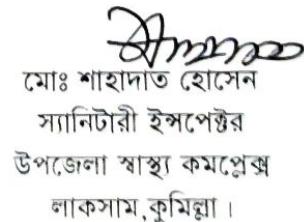 মোঃ শাহাদাত হোসেন
স্যানিটারী ইন্সপেক্টর
উপজেলা স্বাস্থ্য কমপ্লেক্স
লাকসাম,কুমিল্লা।